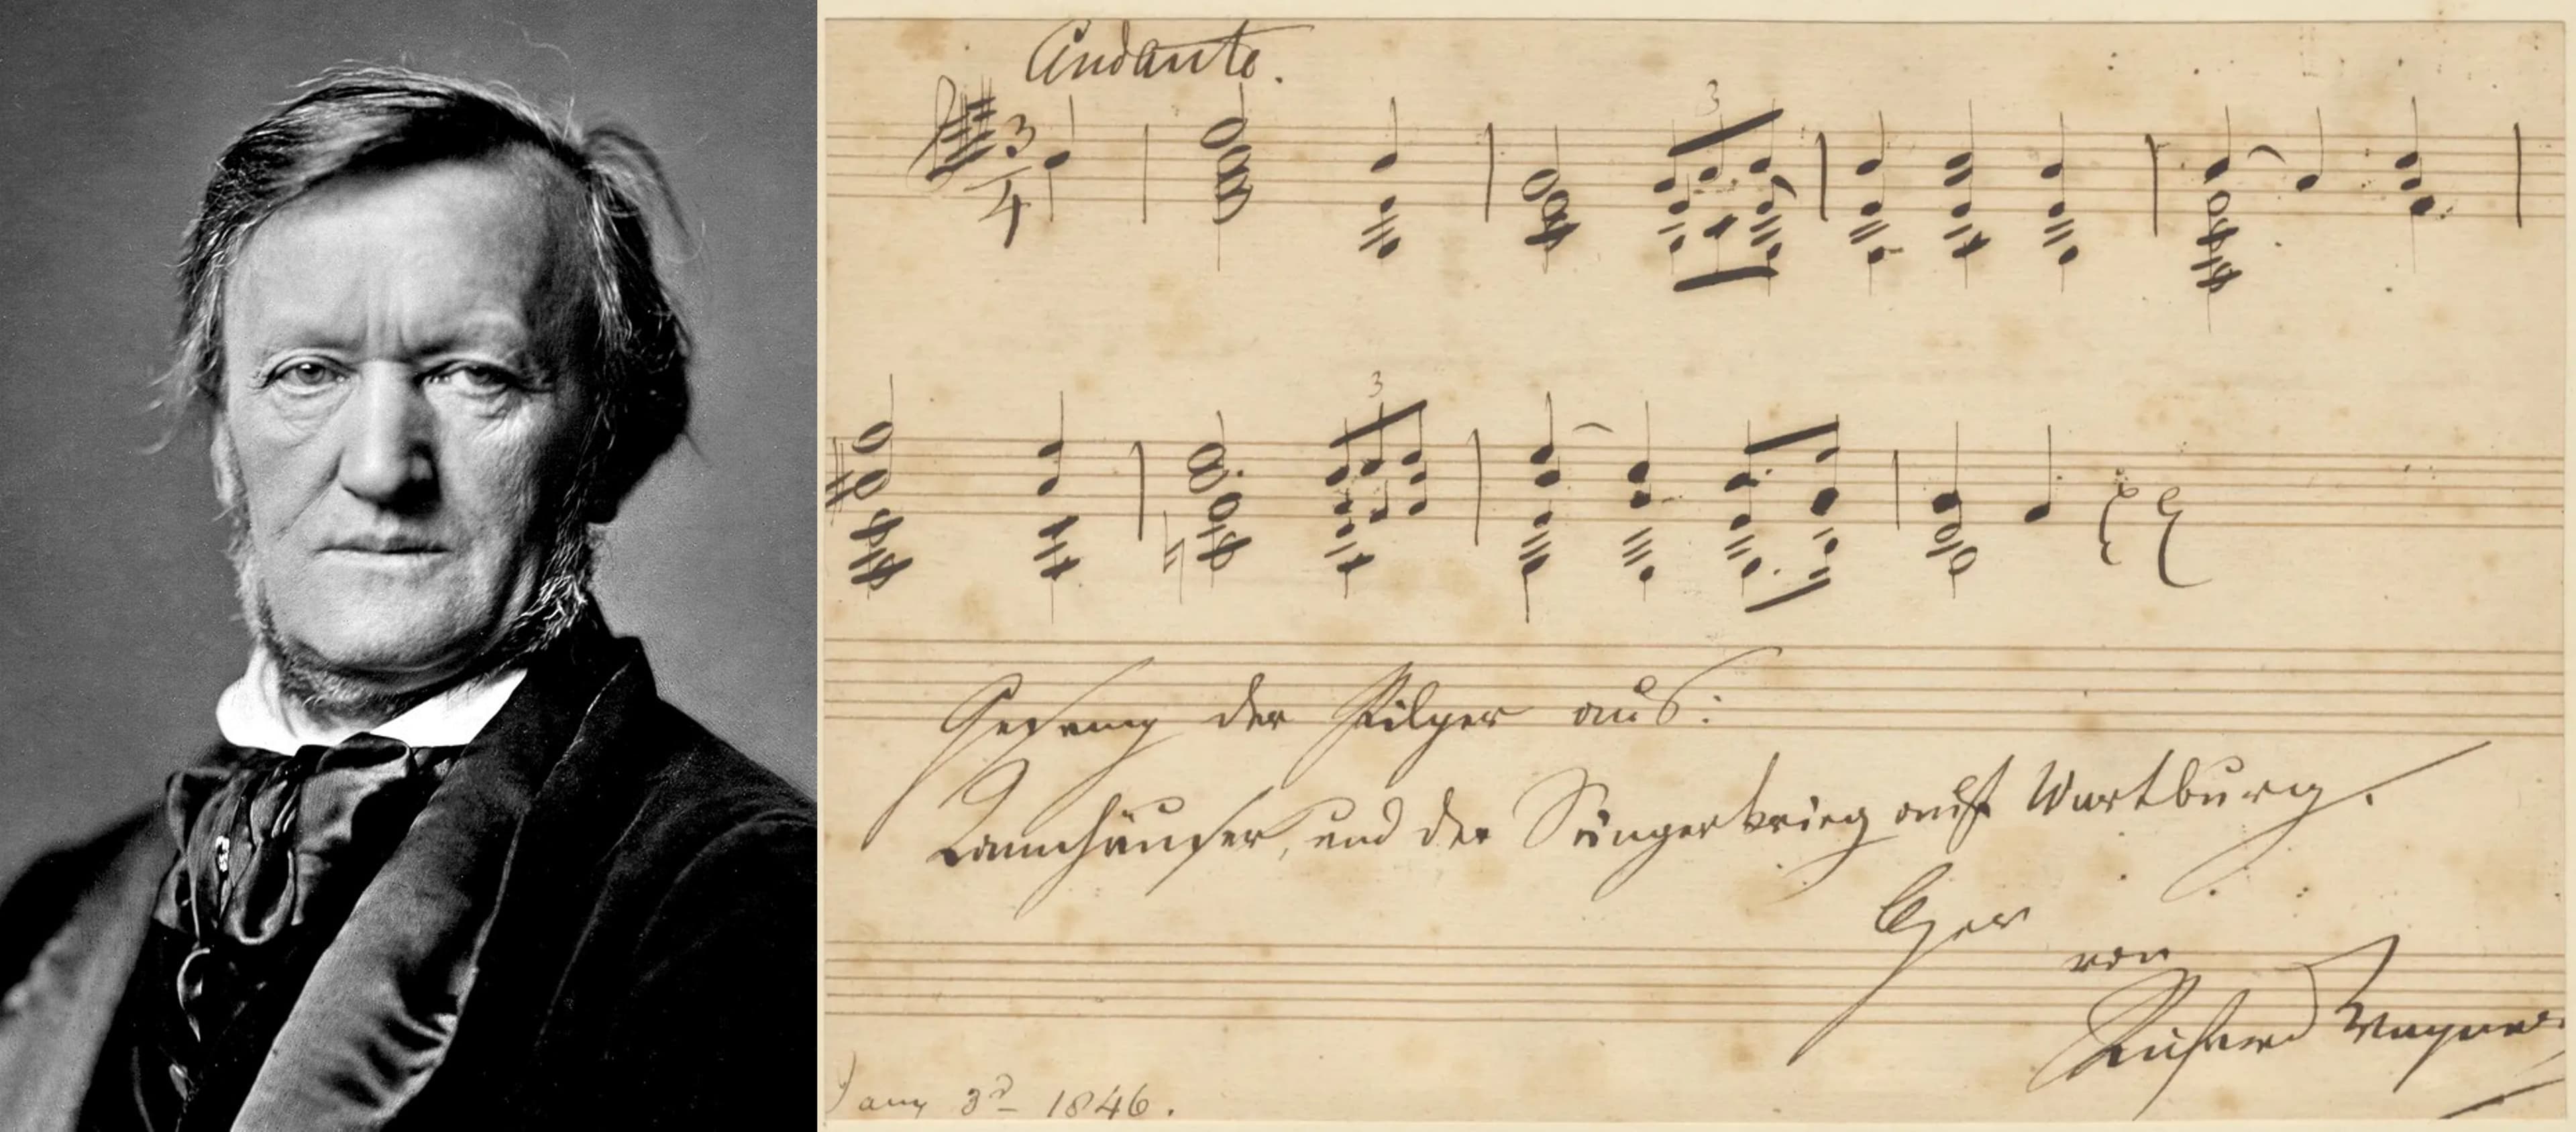 Andante.
3
4
3
3
Gesang der Pilger aus:
Tannhäuser, und der Sängerkrieg auf Wartburg.
von
Richard Wagner
Jany 3d 1846.